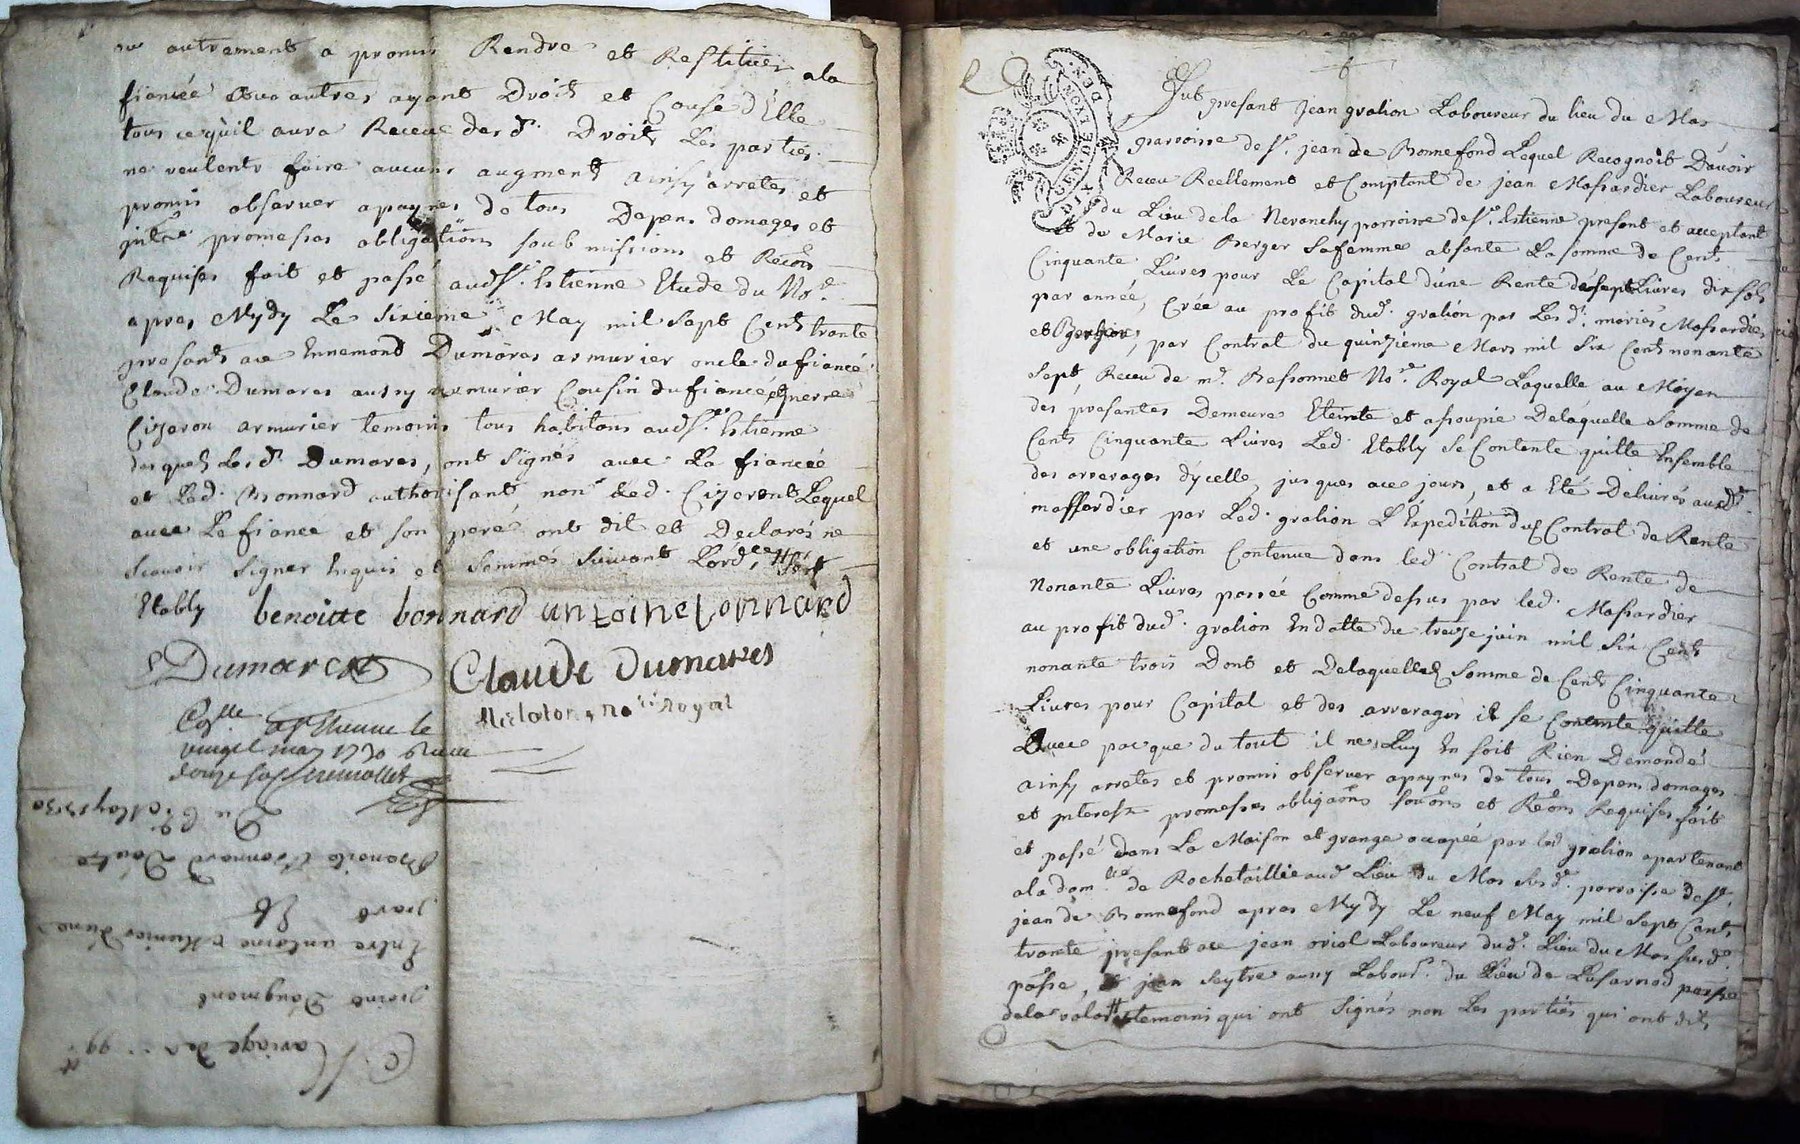 ou autrement a promis Rendre et Restituer a la
fiancée ou a autres ayant Droit et Cause d'Elle
tous ce quil aura Receue des d. Droits Les parties
ne veulents faire aucuns augments ainsy arretes et
promis observer a paynes de tous Depens domages et
promesses obligations soubmissions et
Requises fait et passé aud St. Estienne Etude du No.re
apres Mydy Le Sixieme May mil sept Cents trante
presants ace Ennemond Dumarest armurier oncle du fiancé
Claude Dumares aussy armurier Cousin du fiancé et pierre
Cizeron armurier temoins tous habitans aud St. Estienne
desquels Les d. Dumares, ont signés avec La fiancée
et Led. Bonnard authorisant non Led. Cizeron Lequel
avec Le fiancé et son pere ont dit et Declarés ne
scavoir signer Enquis et sommés suivant L'ord.ce
Etably benoitte bonnard antoine bonnard
Dumarest Claude Dumares
No.re Royal
Con.lle a St Etienne le
vingt may 1730 Receu
douze sols
Du 6.e May 1730
Benoite Bonnard D'autre
part
Entre antoine Munier d'une
point D'augment
Mariage de 99
6
Fut presant Jean gralion Laboureur du lieu du Mas
parroisse de St. jean de Bonnefond Lequel Recognoit D'avoir
Receu Reellement et Comptant de jean Massardier Laboureur
GEN. DE LYON
DIX DEN.
du Lieu de la Nevanchy parroisse de St. Estienne presant et acceptant
et de Marie Berger sa femme absante La somme de Cents
Cinquante Livres pour Le Capital d'une Rente de sept Livres dix sols
par année, Crée au profit dud. gralion par Les d. mariés Massardier
et Berger, par Contrat du quinzieme Mars mil six Cents nonante
sept, Receu de m.e Bessonnet No.re Royal Laquelle au Moyen
des presantes Demeure Eteinte et assoupie De laquelle somme de
Cents Cinquante Livres Led. Etably se Contente quitte Ensemble
des arrerages d'ycelle, jusques ace jour, et a Eté Delivrés aud.
massardier par Led. gralion L'Expedition dud Contrat de Rente
et une obligation Contenue dans led. Contrat de Rente de
Nonante Livres passée Comme dessus par led. Massardier
au profit dud. gralion En datte du treize juin mil six Cents
nonante trois Dont et De laquelle somme de Cents Cinquante
Livres pour Capital et des arrerages il se Contente quitte
avec pacque du tout il ne Luy En soit Rien Demandé
ainsy arretes et promis observer a paynes de tous Depens domages
et interest promesses obligaõns soûõns et Reõns Requises fait
et passé dans La Maison et grange occupée par led gralion apartenant
a la dem.lle de Rochetaillie aud. Lieu du Mas sus d. parroisse de St.
jean de Bonnefond apres Mydy Le neuf May mil sept Cents
trante presants ace jean oriol Laboureur dud. Lieu du Mas susd.
passe, et jean Seytre aussy Labour. du Lieu de Lusarnod passe
de la valla temoins qui ont signés non Les parties qui ont dits